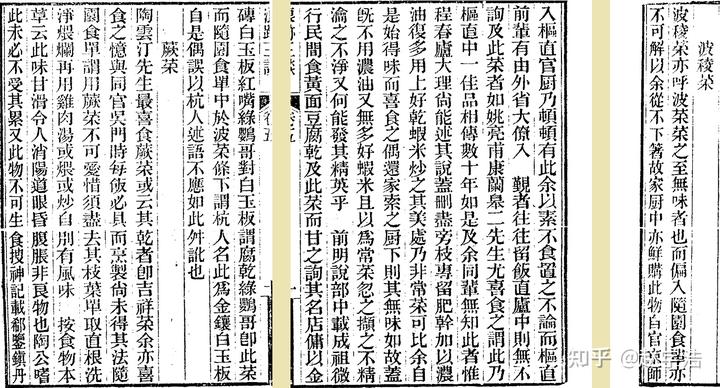 波稜菜
波稜菜亦呼波菜菜之至無味者也而偏入隨園食單亦
不可解以余從不下箸故家厨中亦鮮購此物自官京師
入樞直官厨乃頓頓有此余以素不食置之不論而樞直
前輩有由外省大僚入 覲者往往留飯直廬中則無不
詢及此菜者如姚亮甫康蘭皋二先生尤喜食之謂此乃
樞直中一佳品相傳數十年如是及余同輩無知此者惟
程春廬大理尚能述其說葢刪盡旁枝專留肥幹加以濃
油復多用上好乾蝦米炒之其美處乃非常菜可比余自
是始得味而喜食之偶還家索之厨下則其無味如故葢
旣不用濃油又無多好蝦米且以爲常菜忽之擷之不精
瀹之不淨又何能發其精英乎 前明說部中載成祖微
行民間食黃面豆腐乾及此菜而甘之詢其名店傭以金
磚白玉板紅嘴綠鸚哥對白玉板謂腐乾綠鸚哥卽此菜
而隨園食單中於波菜條下謂杭人名此爲金鑲白玉板
自是偶誤以杭人述語不應如此舛訛也
蕨菜
陶雲汀先生最喜食蕨菜或云其乾者卽吉祥菜余亦喜
食之憶與同官吳門時每飯必具而烹製尚未得其法隨
園食單謂用蕨菜不可愛惜須盡去其枝葉單取直根洗
淨煨爛再用雞肉湯或煨或炒自別有風味 按食物本
草云此味甘滑令人消陽道眼昏腹脹非良物也陶公嗜
此未必不受其累又此物不可生食搜神記載郗鑒鎮丹
知乎